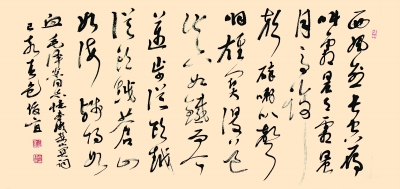 西风烈长空雁
叫霜晨月霜晨
月马蹄
声碎喇叭声
咽雄关漫道
真如铁而今
迈步从头越
从头越苍山
如海残阳如
血 毛泽东同志忆秦娥娄山关词
己亥